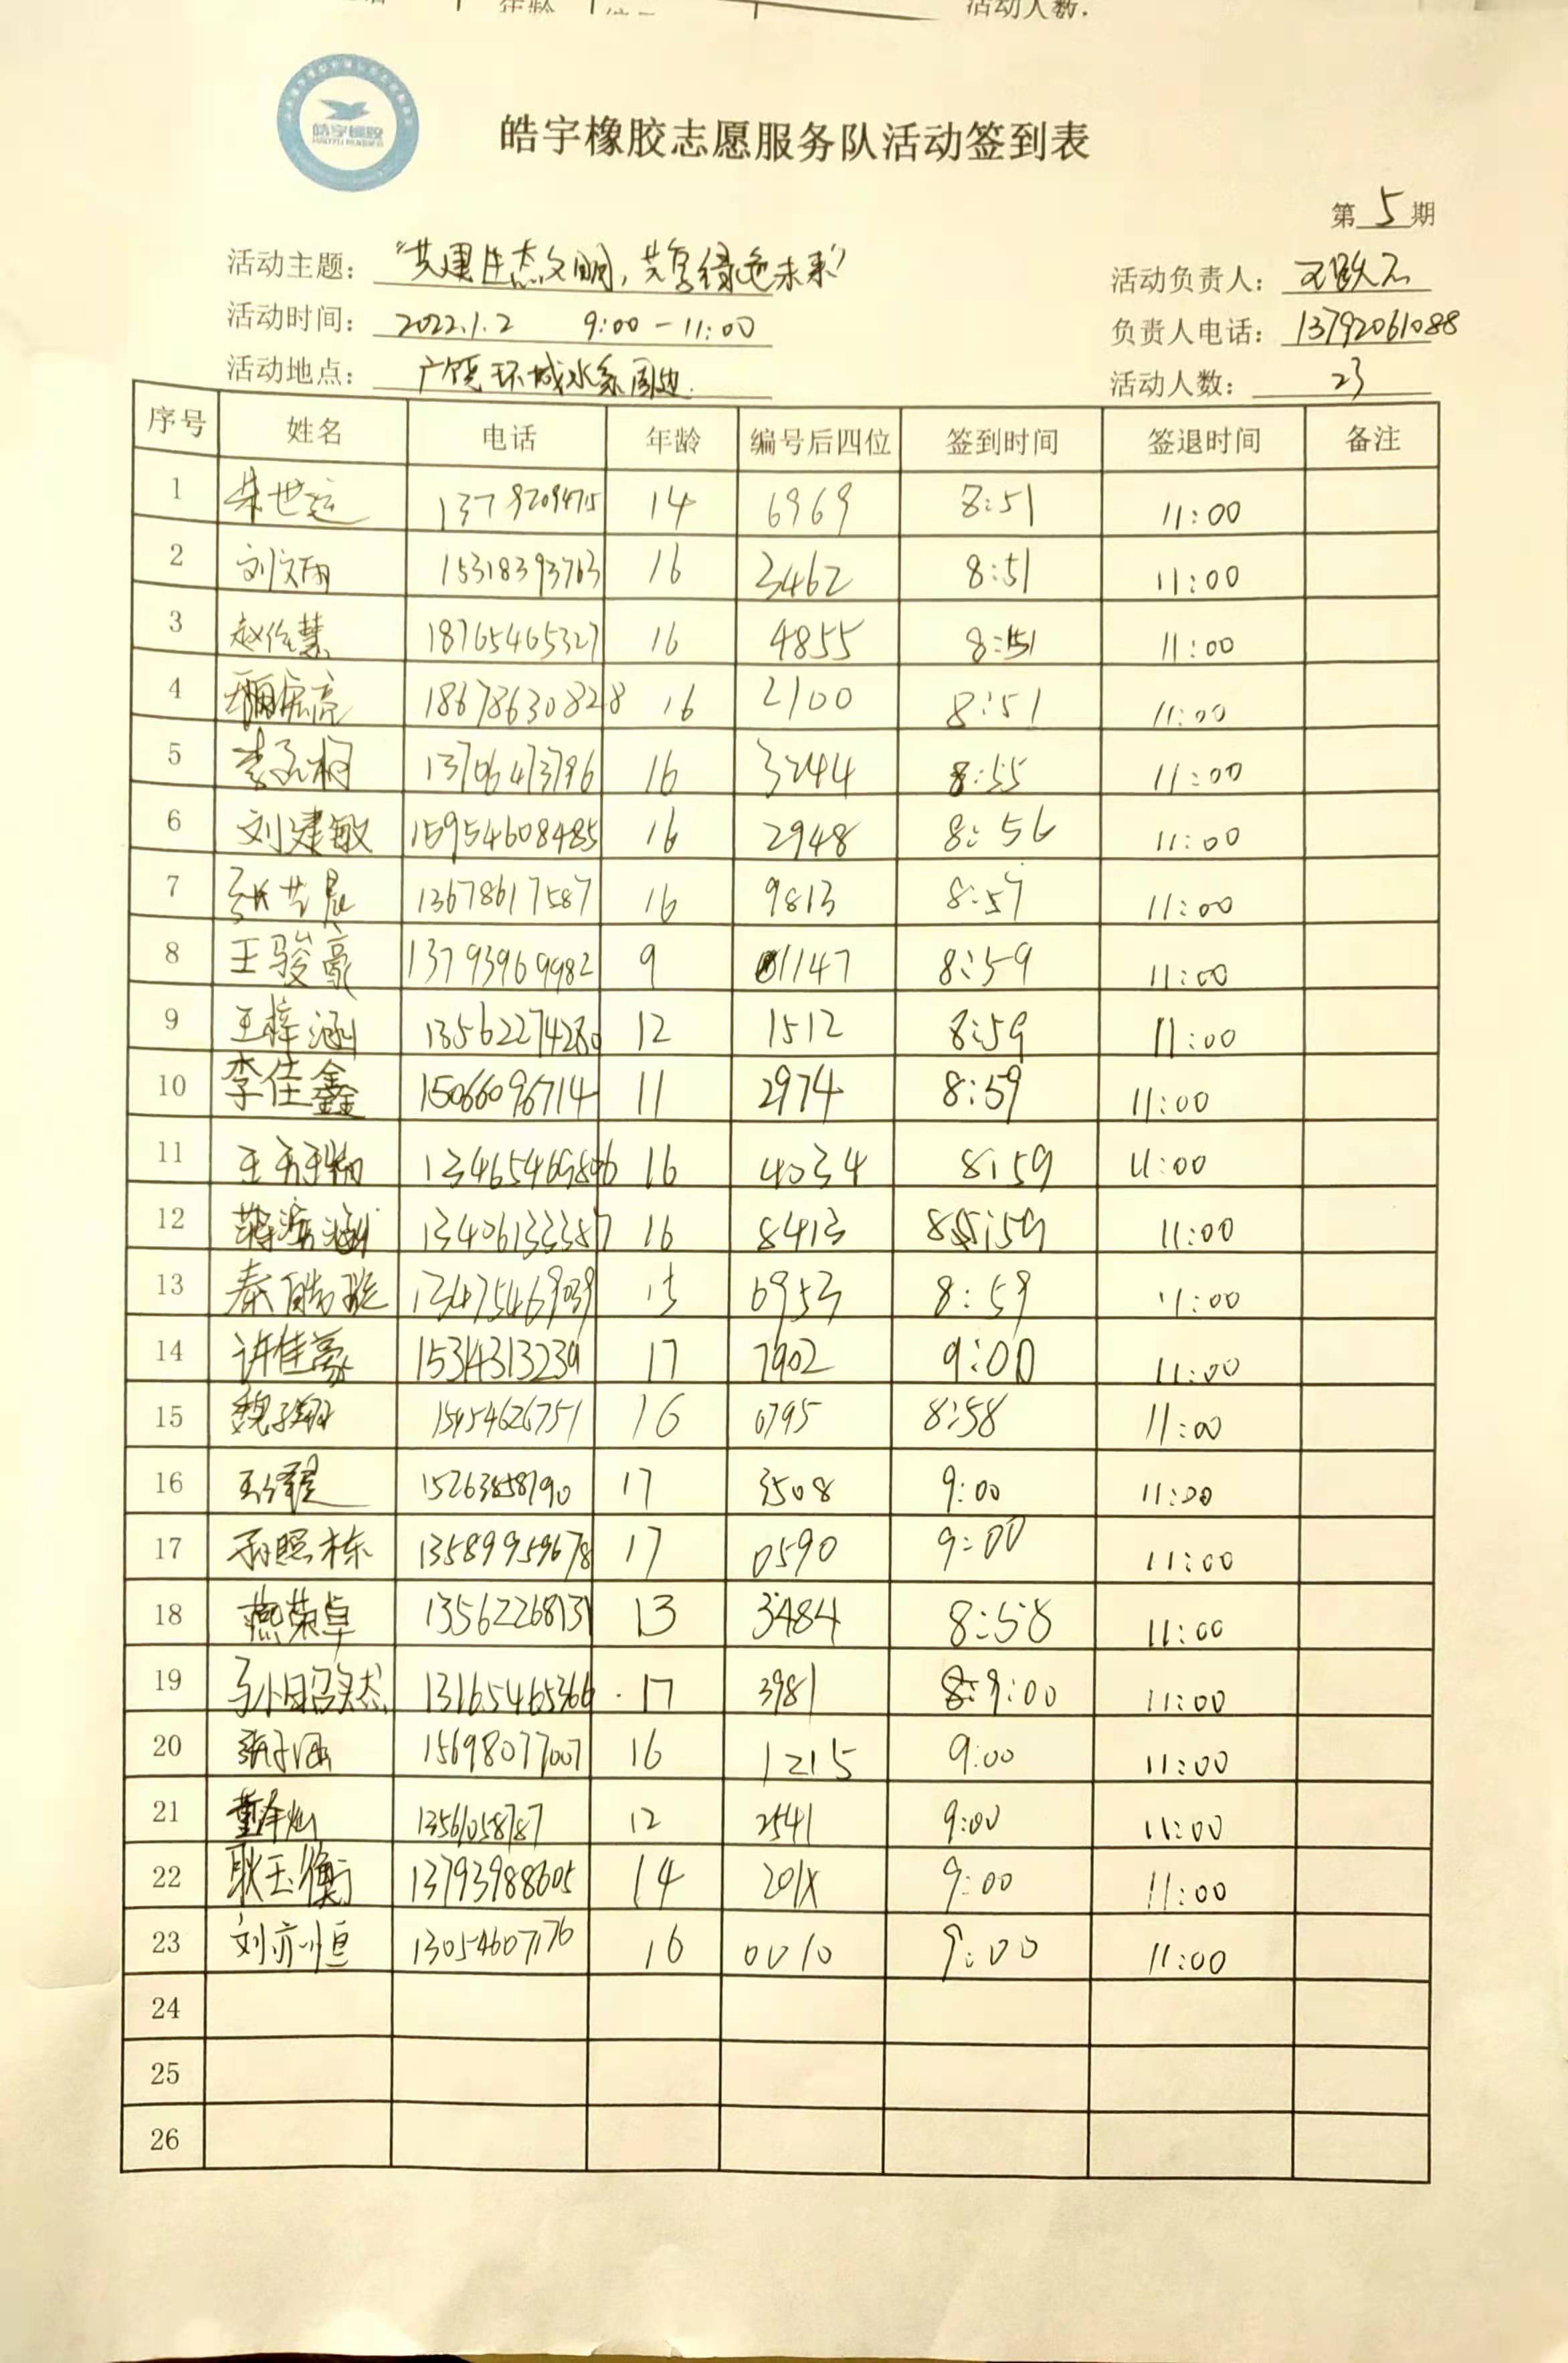 活动人数:
皓宇橡胶
皓宇橡胶志愿服务队活动签到表
第 5 期
活动主题: "共建生态文明,共享绿色未来"
活动负责人:
活动时间: 2022.1.2 9:00-11:00
负责人电话: 13792061088
活动地点: 广饶环城水系周边
活动人数: 23
序号 姓名 电话 年龄 编号后四位 签到时间 签退时间 备注
1 朱世运 13792094715 14 6969 8:51 11:00
2 刘文雨 15318393763 16 3462 8:51 11:00
3 18765465327 16 4855 8:51 11:00
4 18678630828 16 2100 8:51 11:00
5 13706473796 16 3244 8:55 11:00
6 刘建敏 15954608485 16 2948 8:56 11:00
7 张芸晨 13678617587 16 9813 8:57 11:00
8 王骏豪 13793969982 9 1147 8:59 11:00
9 王梓涵 13562274280 12 1512 8:59 11:00
10 李佳鑫 15066096714 11 2974 8:59 11:00
11 16 4034 8:59 11:00
12 13406133387 16 8413 8:59 11:00
13 秦皓骏 13475469039 15 6953 8:59 11:00
14 许佳豪 15314313239 17 7902 9:00 11:00
15 16 0795 8:58 11:00
16 15263858790 17 3508 9:00 11:00
17 孙照栋 13589959678 17 0590 9:00 11:00
18 燕荣卓 13562268131 13 3484 8:58 11:00
19 13165465366 17 3981 9:00 11:00
20 15698077007 16 1215 9:00 11:00
21 12 2541 9:00 11:00
22 耿玉衡 13793988605 14 201X 9:00 11:00
23 刘亦恒 13054607176 16 0010 9:00 11:00
24
25
26